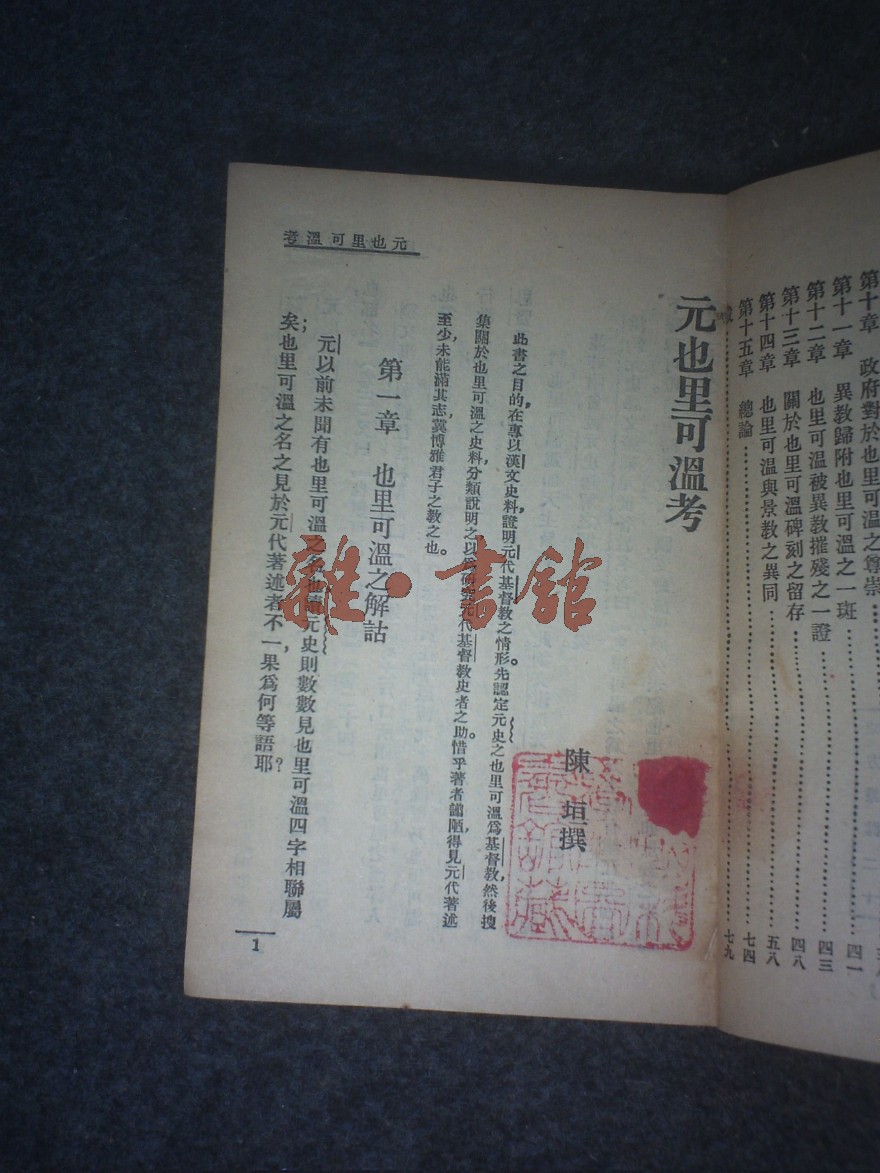 第十章　政府對於也里可溫之尊崇
第十一章　異教歸附也里可溫之一斑　四一
第十二章　也里可溫被異教摧殘之一證　四三
第十三章　關於也里可溫碑刻之留存　四八
第十四章　也里可溫與景教之異同　五八
第十五章　總論　七四
七九
元也里可溫考
陳垣撰
此書之目的，在專以漢文史料，證明元代基督教之情形。先認定元史之也里可溫爲基督教，然後搜
集關於也里可溫之史料，分類說明之，以爲研究元代基督教史者之助。惜乎著者譾陋，得見元代著述
至少，未能滿其志，冀博雅君子之教之也。
第一章　也里可溫之解詁
元以前未聞有也里可溫之名也，讀元史則數數見也里可溫四字相聯屬
矣；也里可溫之名之見於元代著述者不一，果爲何等語耶？
元也里可溫考
1
雜·書館